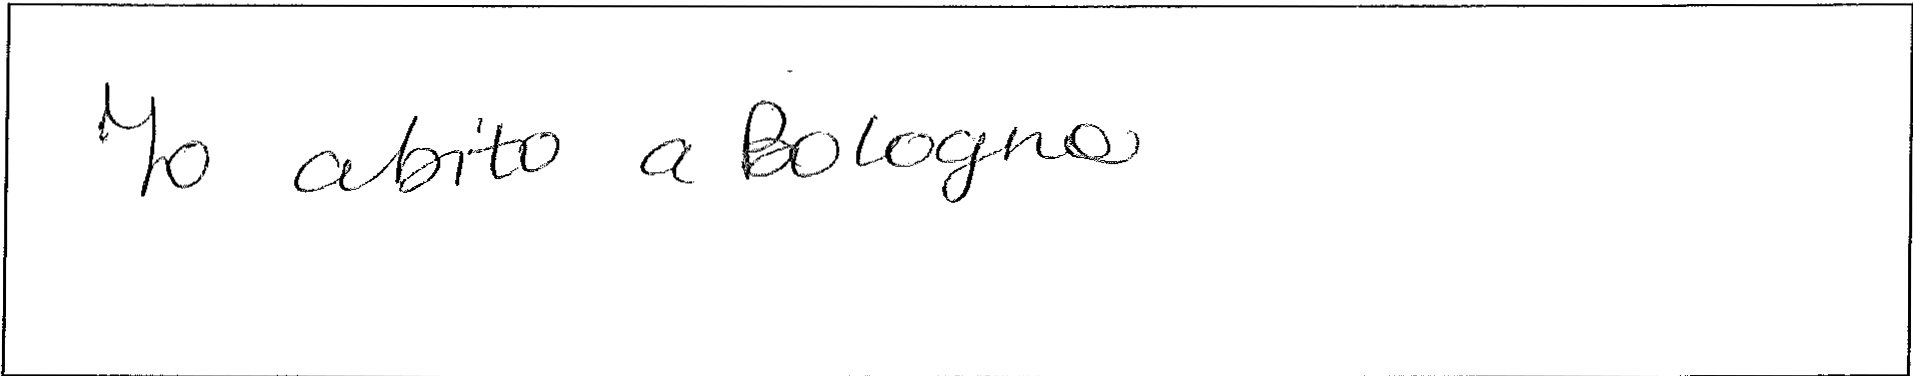 Yo abito a Bologna